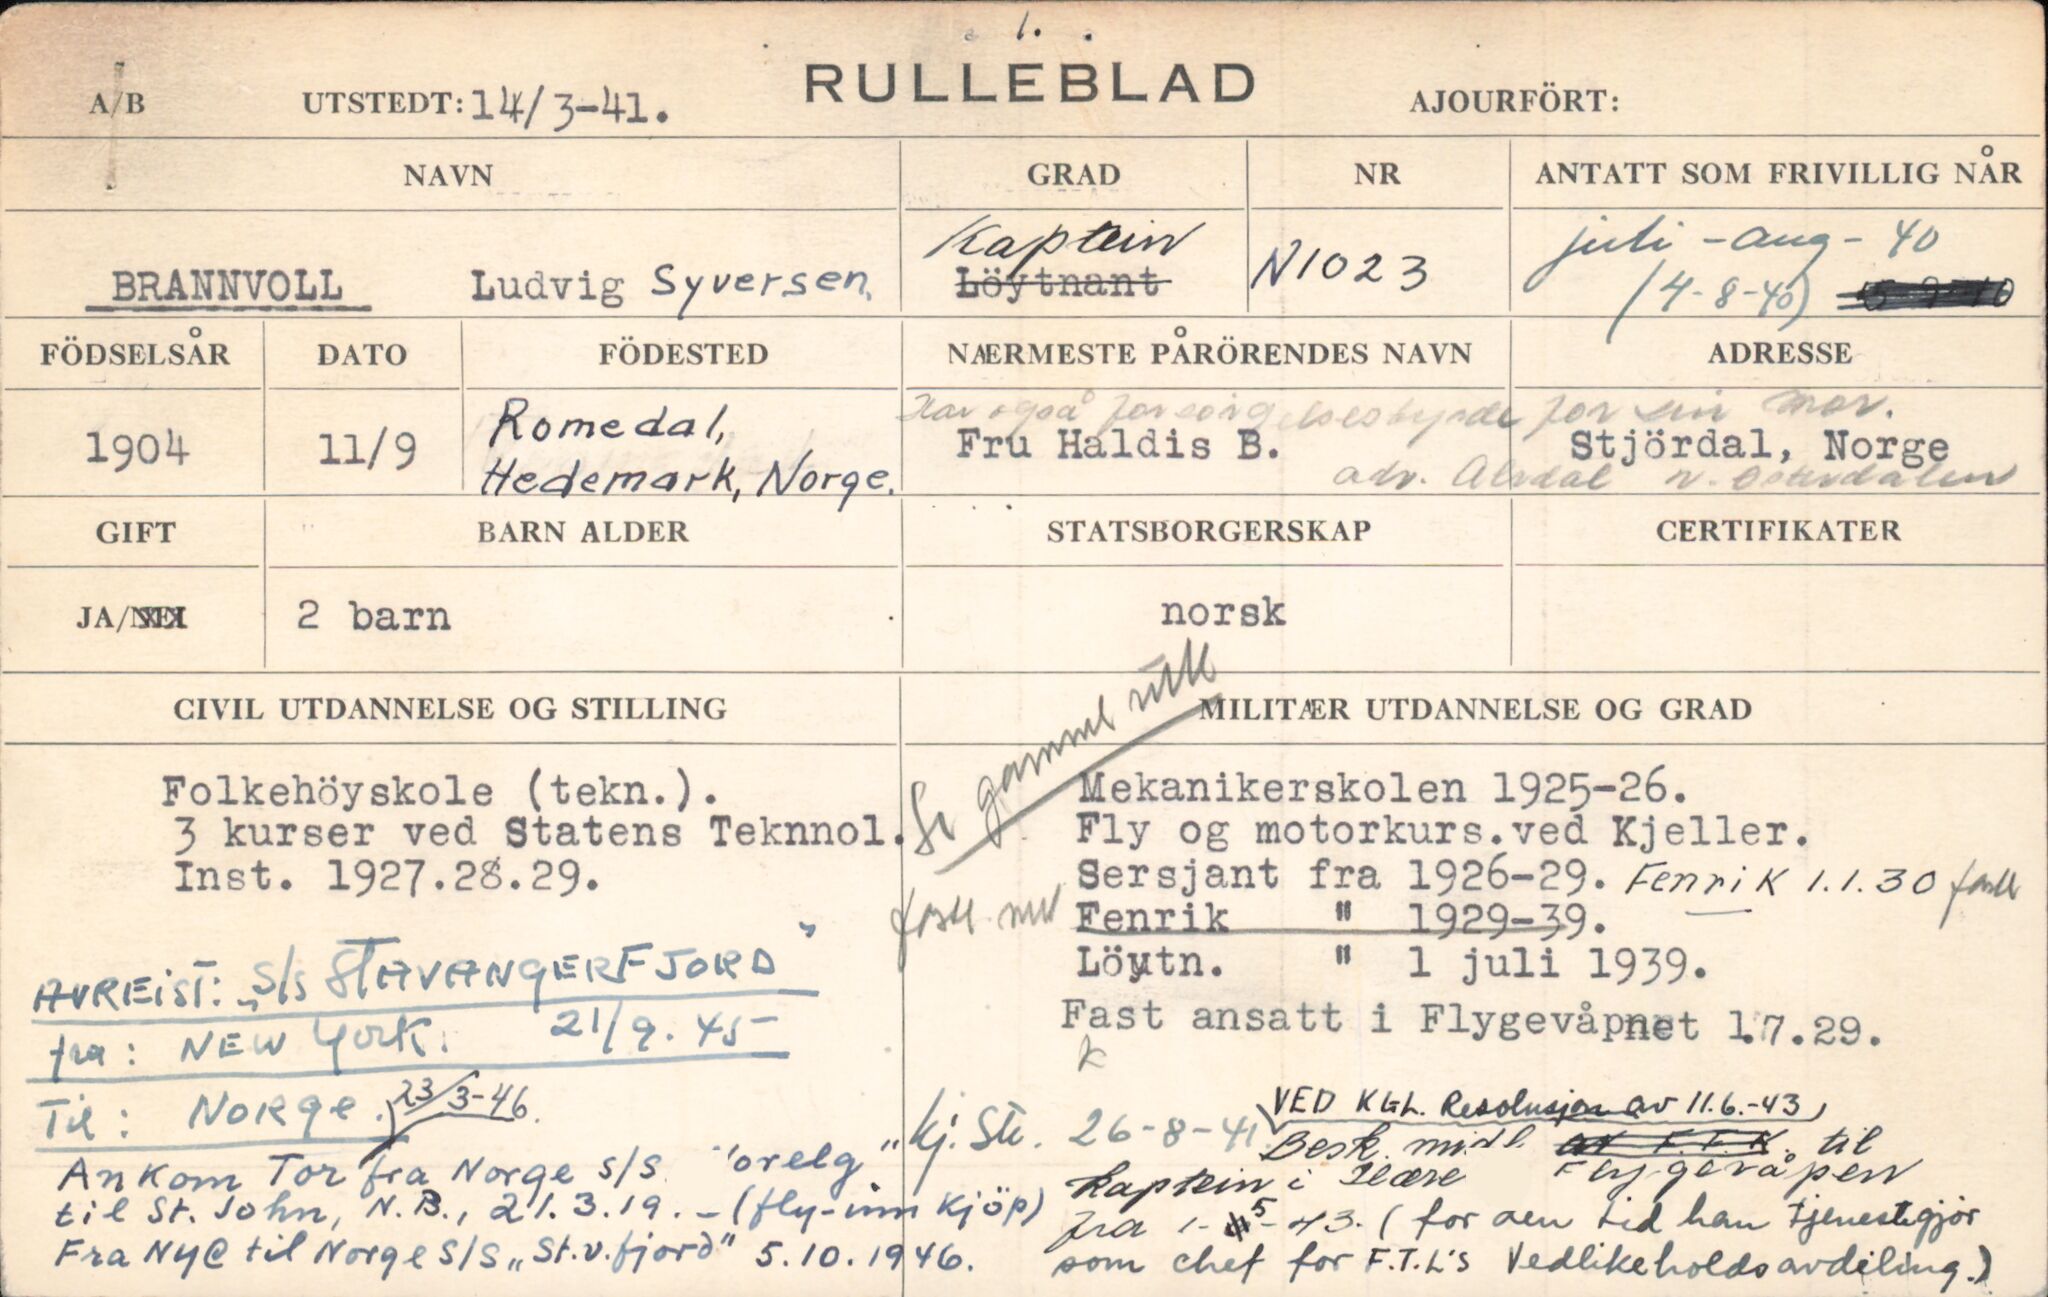 1.
RULLEBLAD
A/B UTSTEDT: 14/3-41. AJOURFÖRT:
NAVN GRAD NR ANTATT SOM FRIVILLIG NÅR
Kaptein juli - aug - 40
BRANNVOLL Ludvig Syversen. Löytnant N1023 (4-8-40)
FÖDSELSÅR DATO FÖDESTED NÆRMESTE PÅRÖRENDES NAVN ADRESSE
Har også forsörgelsesbyrde for sin mor.
Romedal,
1904 11/9 Fru Haldis B. Stjördal, Norge
Hedemark, Norge. adr. Alvdal n. Österdalen
GIFT BARN ALDER STATSBORGERSKAP CERTIFIKATER
JA/NEI 2 barn norsk
CIVIL UTDANNELSE OG STILLING MILITÆR UTDANNELSE OG GRAD
Se gammel rulle
Folkehöyskole (tekn.). Mekanikerskolen 1925-26.
3 kurser ved Statens Teknnol. Fly og motorkurs.ved Kjeller.
Inst. 1927.28.29. Sersjant fra 1926-29. Fenrik 1.1.30
Fenrik " 1929-39.
Löytn. " 1 juli 1939.
Fast ansatt i Flygevåpnet 1.7.29.
AVREIST: „S/S STAVANGERFJORD"
fra: NEW York. 21/9. 45-
Til: Norge. 23/3-46.
Ankom Tor fra Norge S/S "orelg"
til St. John, N.B., 21.3.19. - (fly-inn kjöp)
Fra NYC til Norge S/S „St.v.fjord" 5.10.1946.
k
VED KGL. Resolusjon av 11.6.-43,
Kj. Str. 26-8-41. Besk. midl. av F.T.K. til
Kaptein i Hære Flygevåpen
fra 1-5-43. (for den tid han tjenestgjör
som chef for F.T.L's Vedlikeholdsavdeling.)